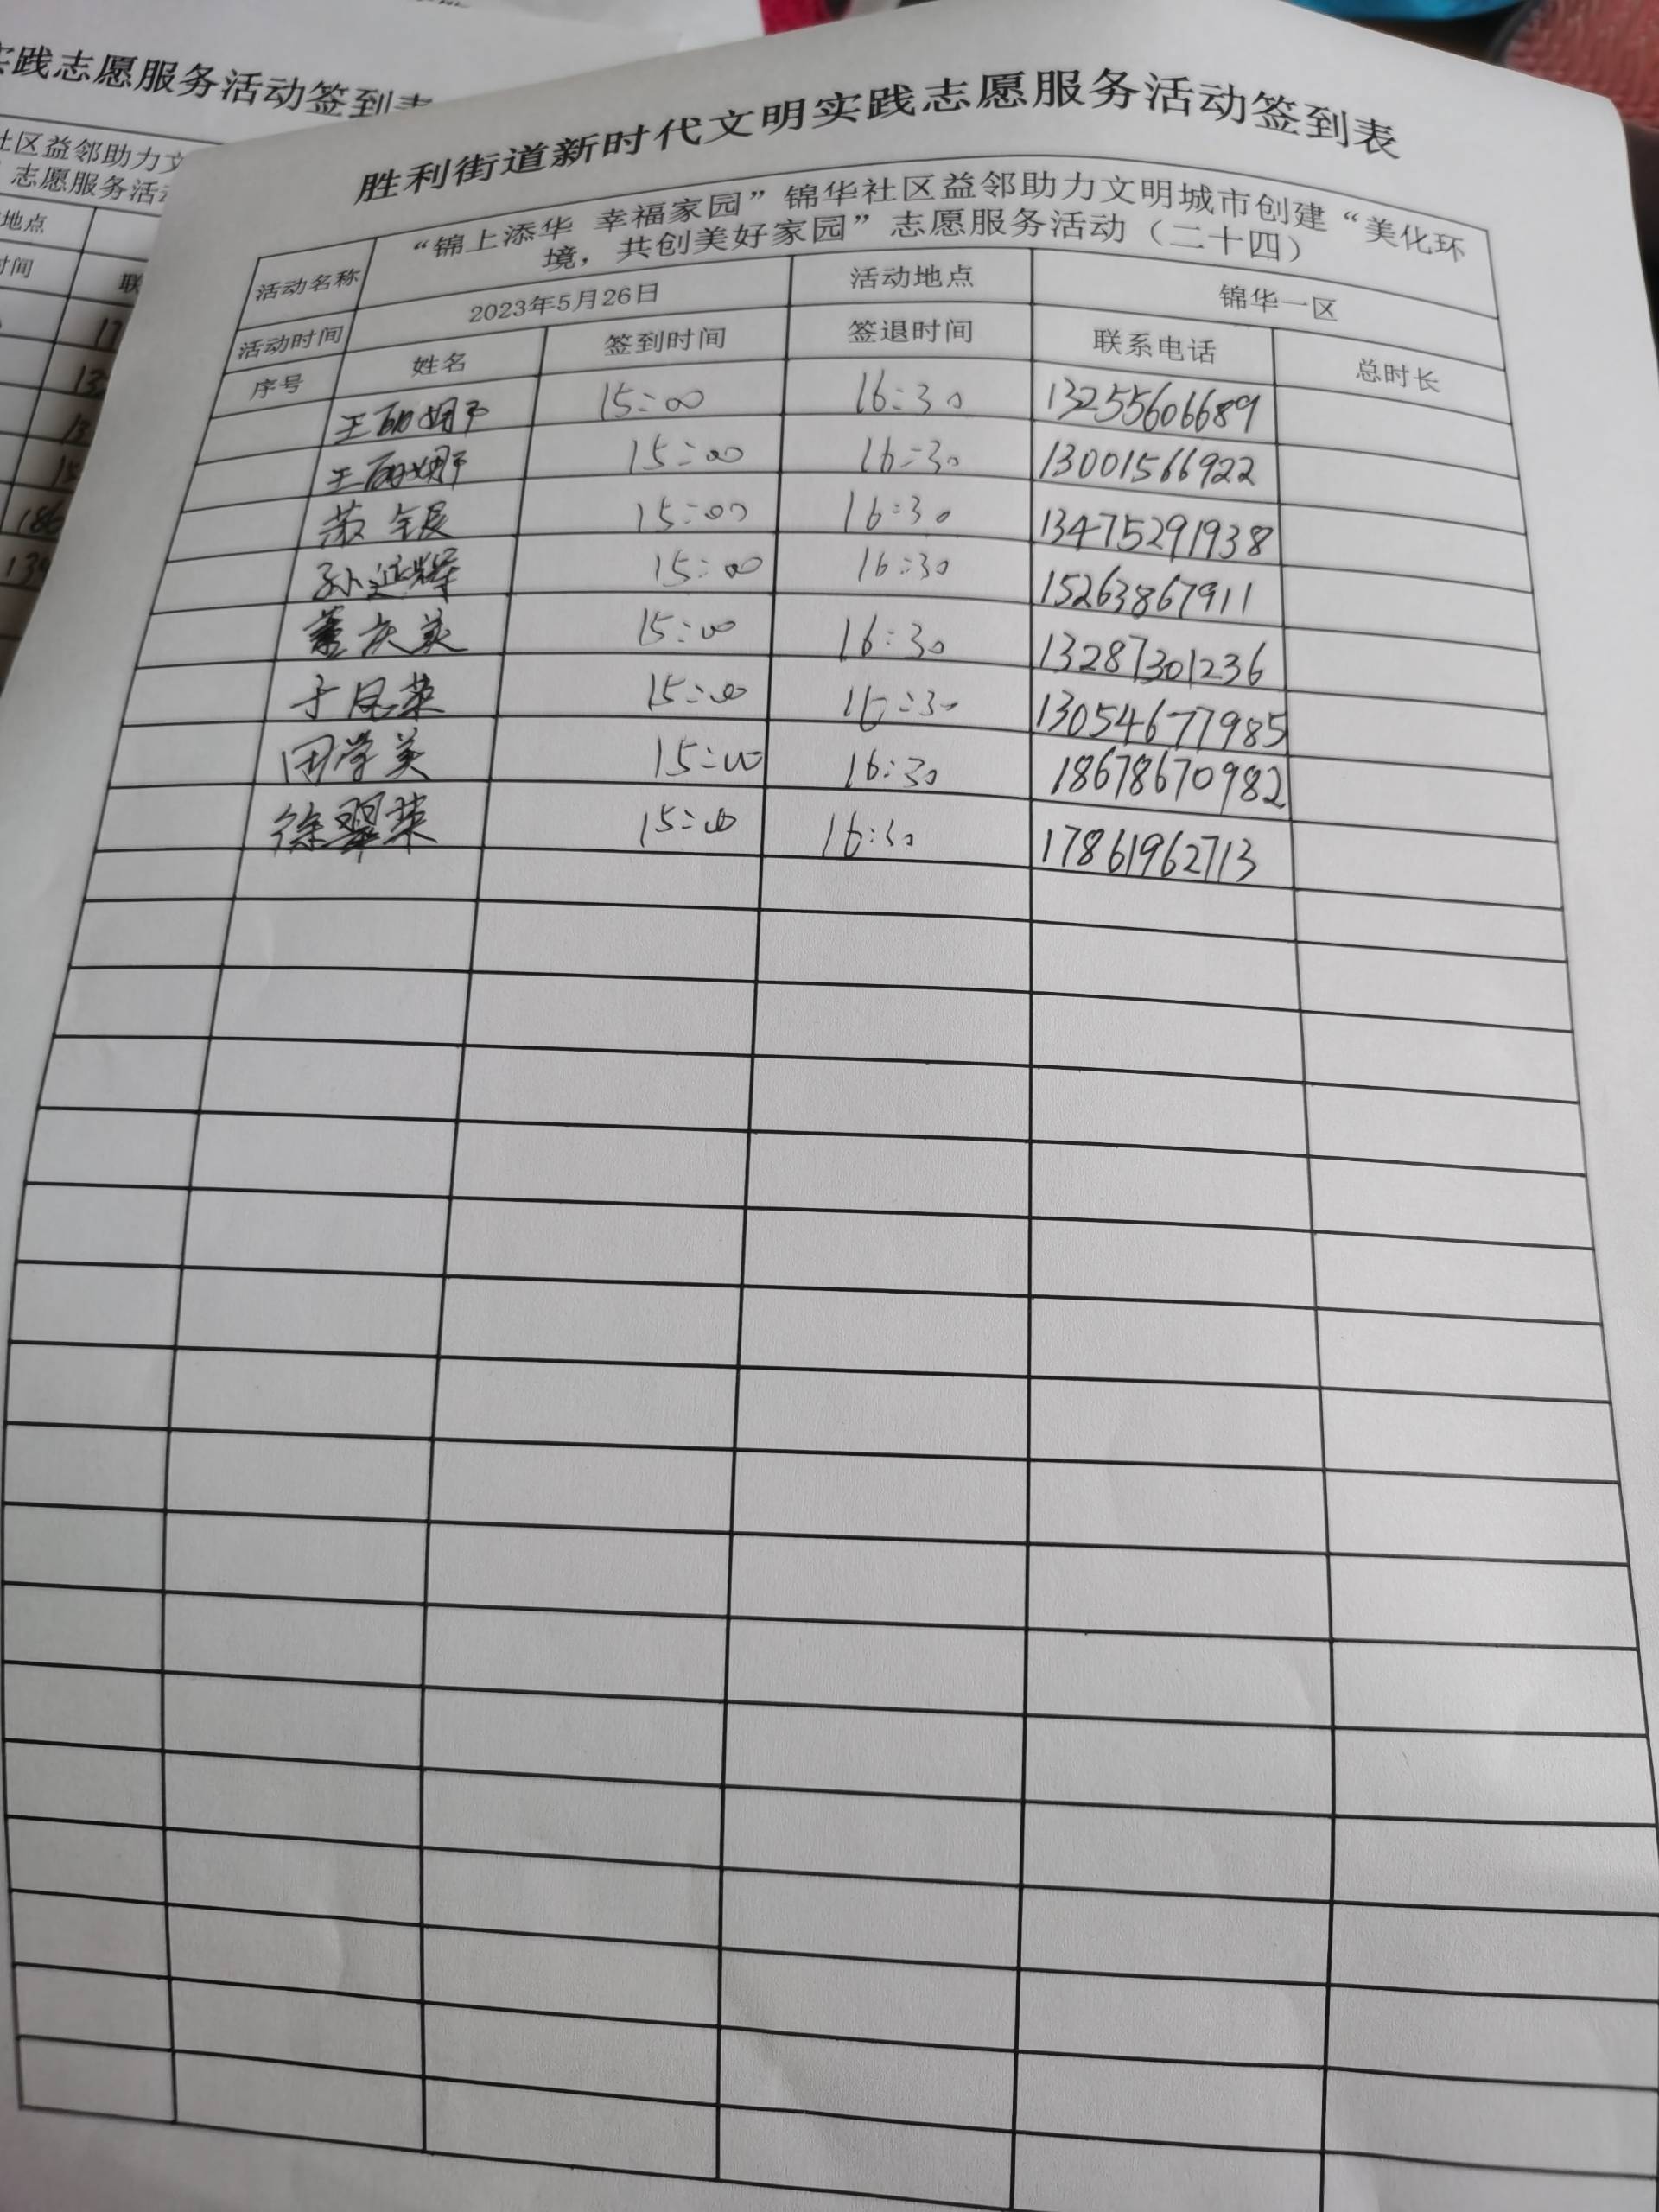 实践志愿服务活动签到表
社区益邻助力文
志愿服务活动
地点
时间
联
胜利街道新时代文明实践志愿服务活动签到表
活动名称 “锦上添华 幸福家园”锦华社区益邻助力文明城市创建“美化环
境，共创美好家园”志愿服务活动（二十四）
活动时间 2023年5月26日 活动地点 锦华一区
序号 姓名 签到时间 签退时间 联系电话 总时长
王丽娜 15:00 16:30 13255606689
王丽娜 15:00 16:30 13001566922
15:00 16:30 13475291938
孙延辉 15:00 16:30 15263867911
董庆美 15:00 16:30 13287301236
于凤荣 15:00 16:30 13054677985
田学美 15:00 16:30 18678670982
徐翠荣 15:00 16:30 17861962713